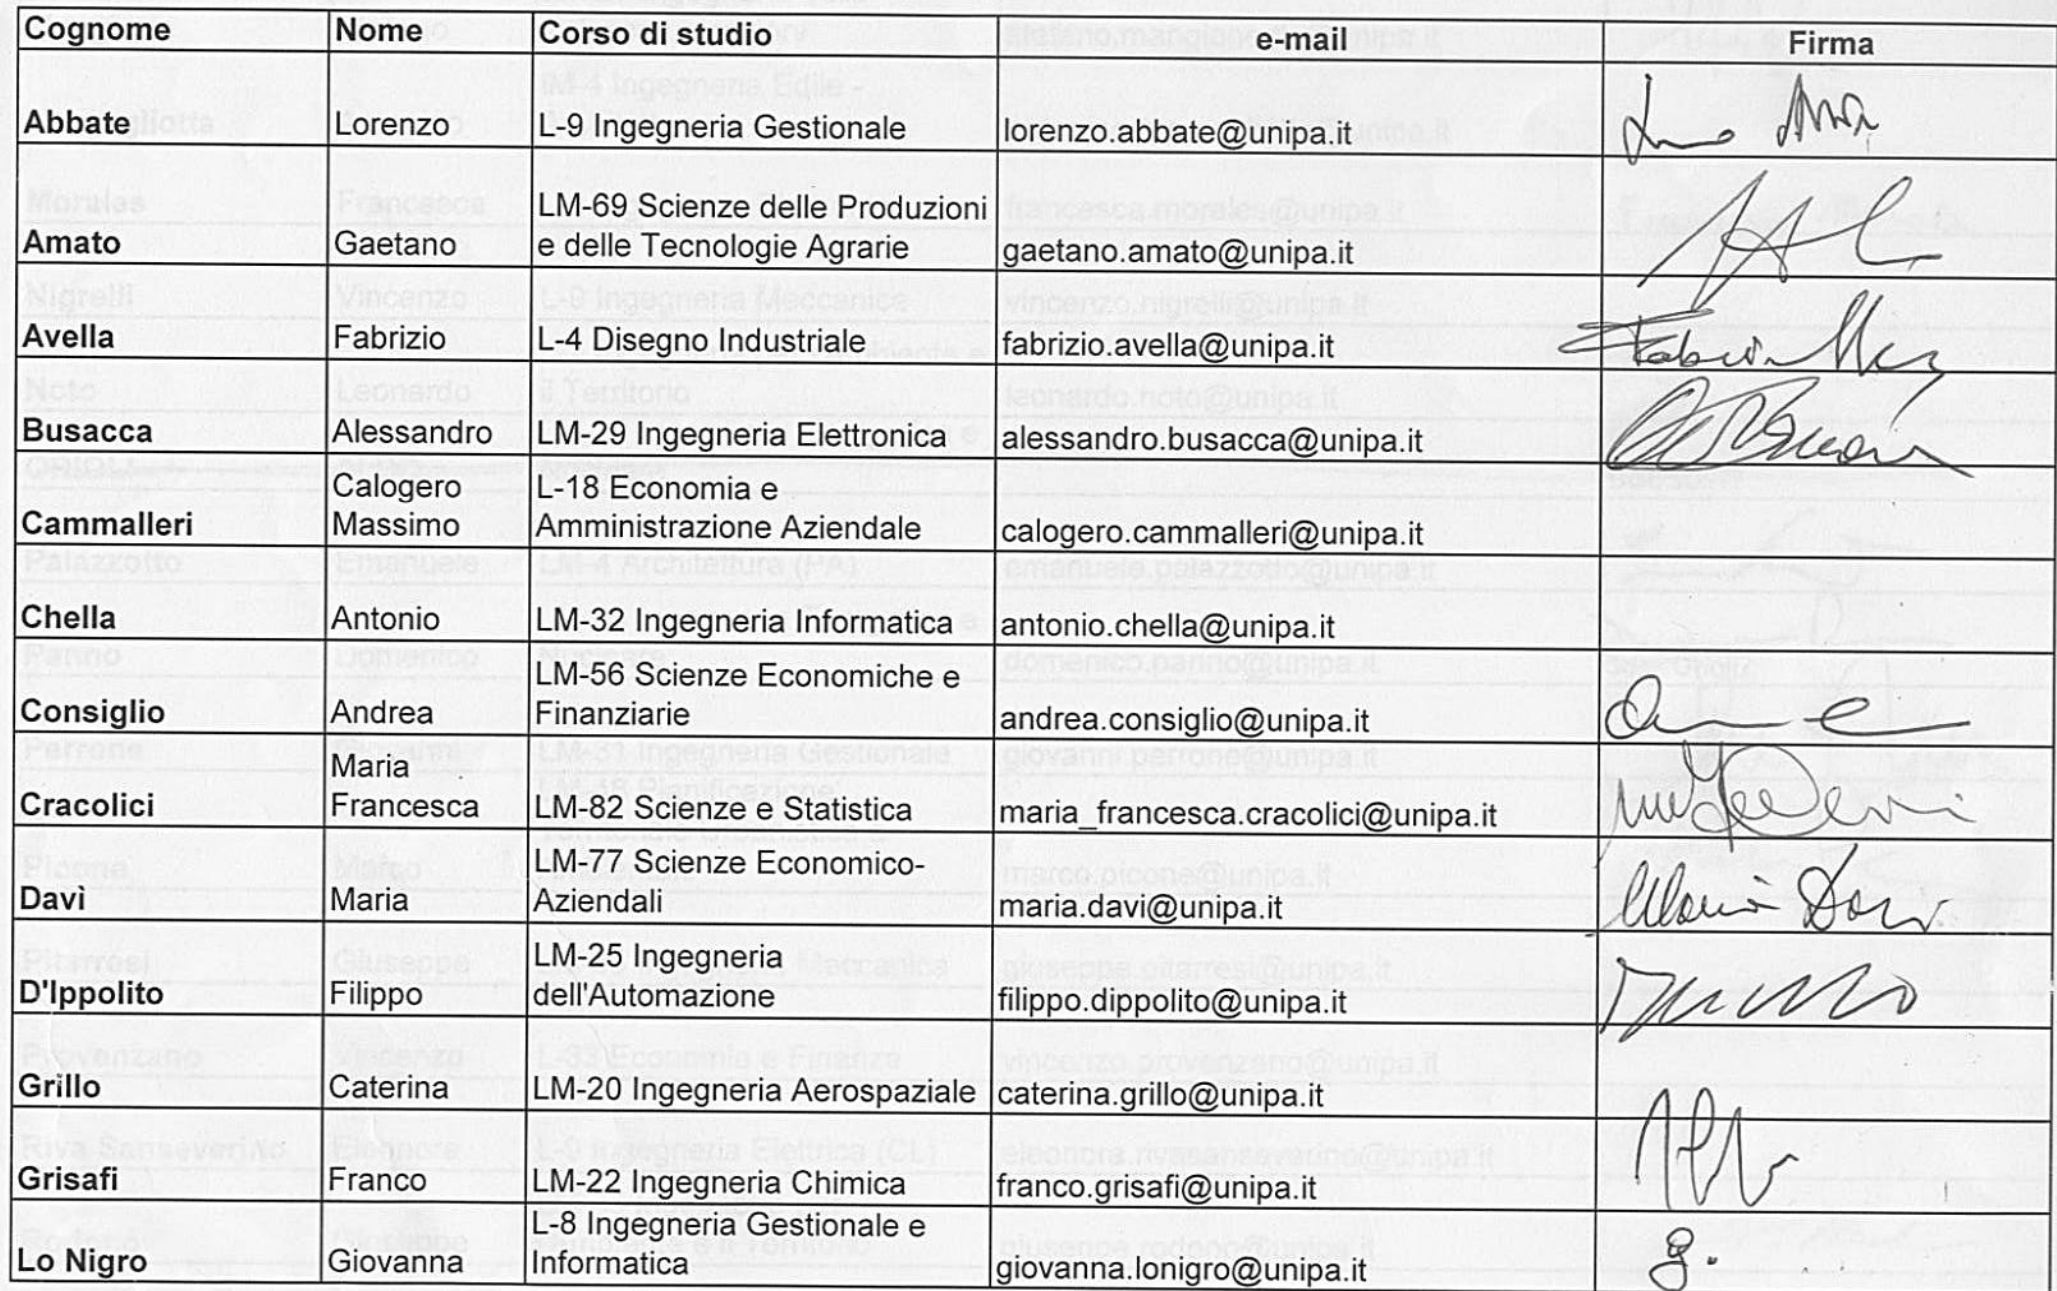 Cognome Nome Corso di studio e-mail Firma
Abbate Lorenzo L-9 Ingegneria Gestionale lorenzo.abbate@unipa.it
LM-69 Scienze delle Produzioni
Amato Gaetano e delle Tecnologie Agrarie gaetano.amato@unipa.it
Avella Fabrizio L-4 Disegno Industriale fabrizio.avella@unipa.it
Busacca Alessandro LM-29 Ingegneria Elettronica alessandro.busacca@unipa.it
Calogero L-18 Economia e
Cammalleri Massimo Amministrazione Aziendale calogero.cammalleri@unipa.it
Chella Antonio LM-32 Ingegneria Informatica antonio.chella@unipa.it
LM-56 Scienze Economiche e
Consiglio Andrea Finanziarie andrea.consiglio@unipa.it
Maria
Cracolici Francesca LM-82 Scienze e Statistica maria_francesca.cracolici@unipa.it
LM-77 Scienze Economico-
Davì Maria Aziendali maria.davi@unipa.it
LM-25 Ingegneria
D'Ippolito Filippo dell'Automazione filippo.dippolito@unipa.it
Grillo Caterina LM-20 Ingegneria Aerospaziale caterina.grillo@unipa.it
Grisafi Franco LM-22 Ingegneria Chimica franco.grisafi@unipa.it
L-8 Ingegneria Gestionale e
Lo Nigro Giovanna Informatica giovanna.lonigro@unipa.it